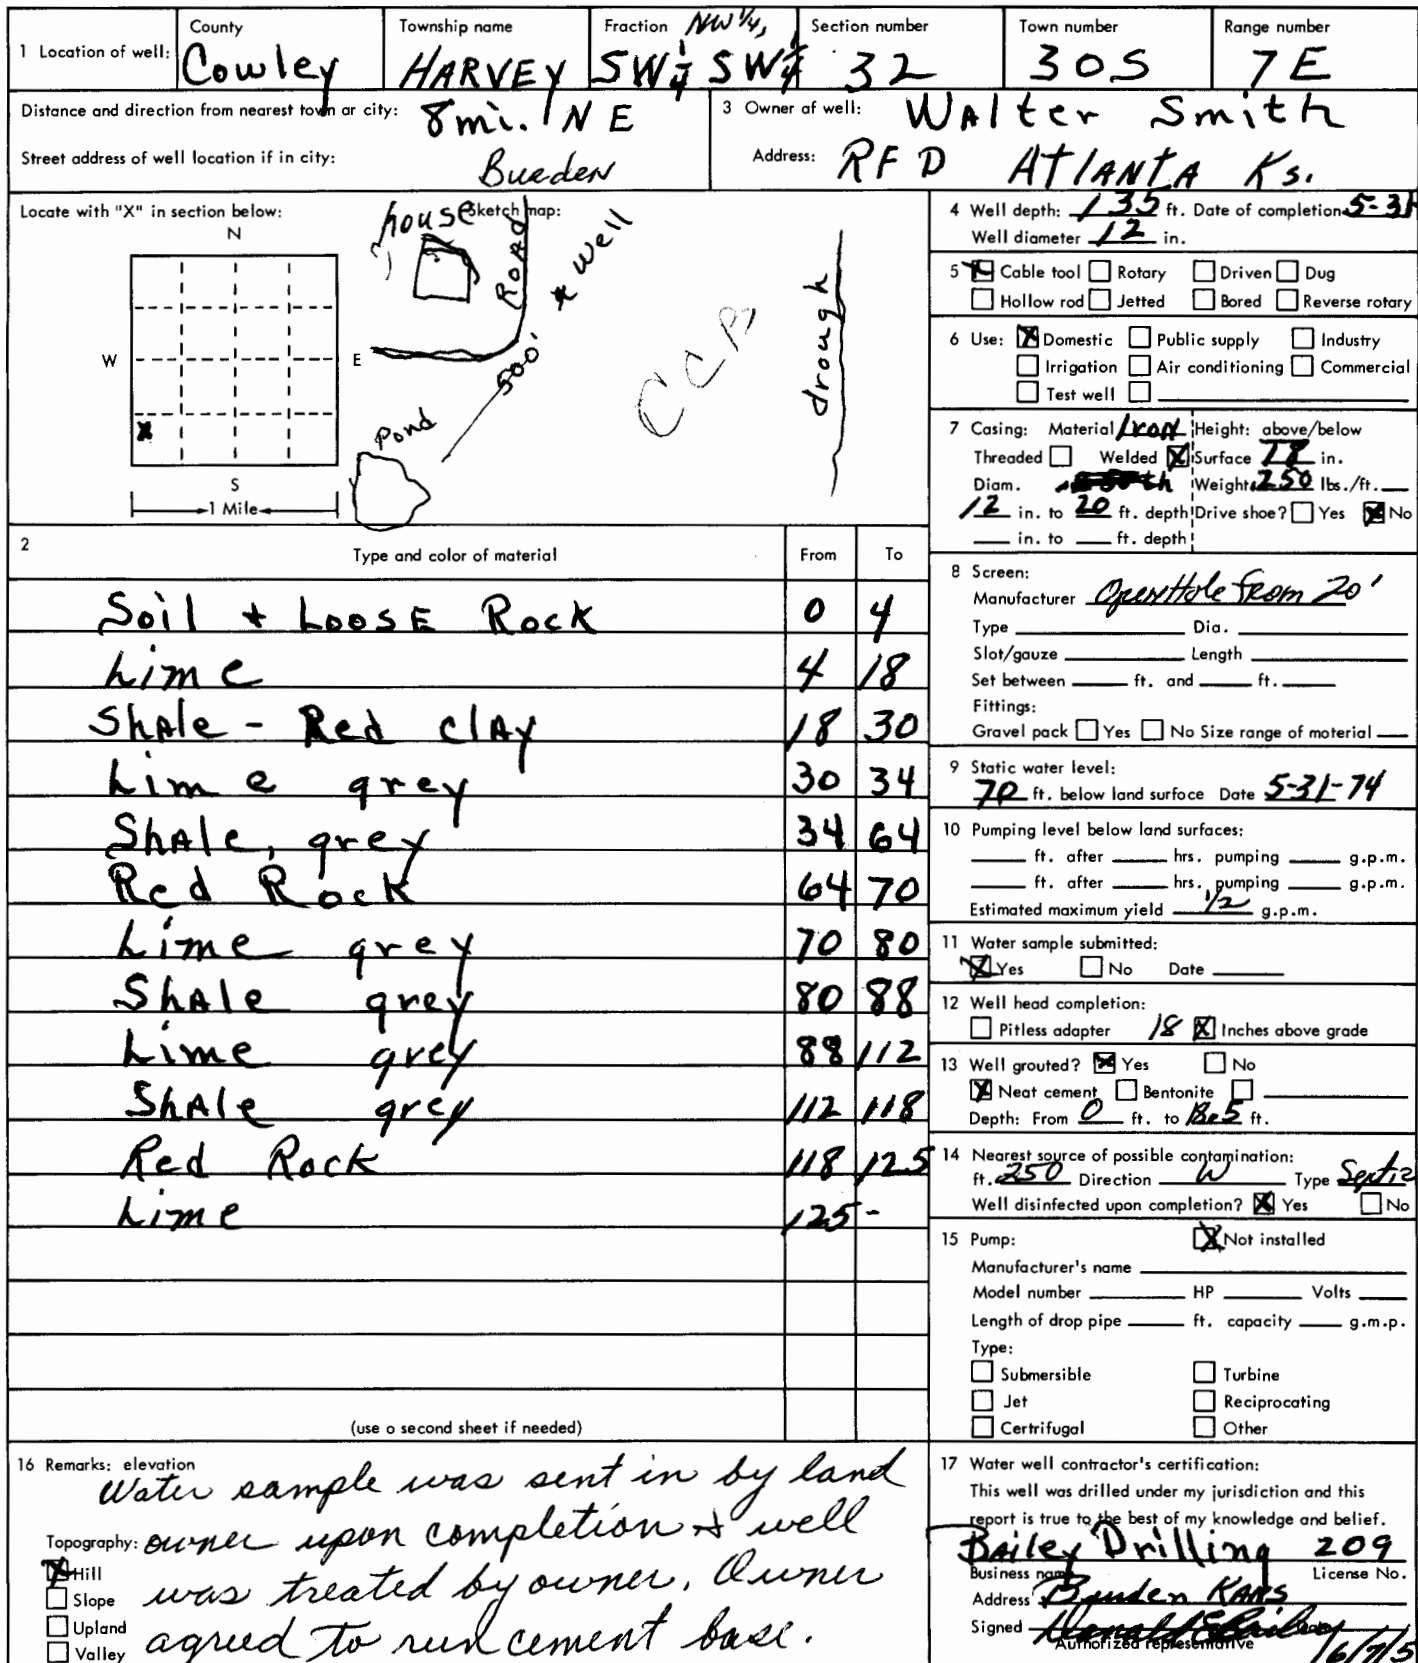 1 Location of well: County Township name Fraction NW 1/4, Section number Town number Range number
Cowley HARVEY SW 1/4 SW 1/4 32 30S 7E
Distance and direction from nearest town or city: 8 mi. NE 3 Owner of well: Walter Smith
Street address of well location if in city: Burden Address: RFD ATLANTA Ks.
Locate with "X" in section below: Sketch map:
N
W E
S
1 Mile
X
house
ROAD
* Well
500'
Pond
CCB
drough
4 Well depth: 135 ft. Date of completion 5-31
Well diameter 12 in.
5 Cable tool Rotary Driven Dug
Hollow rod Jetted Bored Reverse rotary
6 Use: Domestic Public supply Industry
Irrigation Air conditioning Commercial
Test well
7 Casing: Material Iron Height: above/below
Threaded Welded Surface 18 in.
Diam. Weight 250 lbs./ft.
12 in. to 20 ft. depth Drive shoe? Yes No
in. to ft. depth
8 Screen:
Manufacturer Open Hole from 20'
Type Dia.
Slot/gauze Length
Set between ft. and ft.
Fittings:
Gravel pack Yes No Size range of material
9 Static water level:
70 ft. below land surface Date 5-31-74
10 Pumping level below land surfaces:
ft. after hrs. pumping g.p.m.
ft. after hrs. pumping g.p.m.
Estimated maximum yield 1/2 g.p.m.
11 Water sample submitted:
Yes No Date
12 Well head completion:
Pitless adapter 18 Inches above grade
13 Well grouted? Yes No
Neat cement Bentonite
Depth: From 0 ft. to ft.
14 Nearest source of possible contamination:
ft. 250 Direction W Type Septic
Well disinfected upon completion? Yes No
15 Pump: Not installed
Manufacturer's name
Model number HP Volts
Length of drop pipe ft. capacity g.m.p.
Type:
Submersible Turbine
Jet Reciprocating
Certrifugal Other
2 Type and color of material From To
Soil + LOOSE Rock 0 4
Lime 4 18
Shale - Red clay 18 30
Lime grey 30 34
Shale, grey 34 64
Red Rock 64 70
Lime grey 70 80
Shale grey 80 88
Lime grey 88 112
Shale grey 112 118
Red Rock 118 125
Lime 125 -
(use a second sheet if needed)
16 Remarks: elevation
Water sample was sent in by land
owner upon completion + well
was treated by owner. Owner
agreed to run cement base.
Topography:
Hill
Slope
Upland
Valley
17 Water well contractor's certification:
This well was drilled under my jurisdiction and this
report is true to the best of my knowledge and belief.
Bailey Drilling 209
Business name License No.
Address Burden KANS
Signed Donald E Bailey
Authorized representative